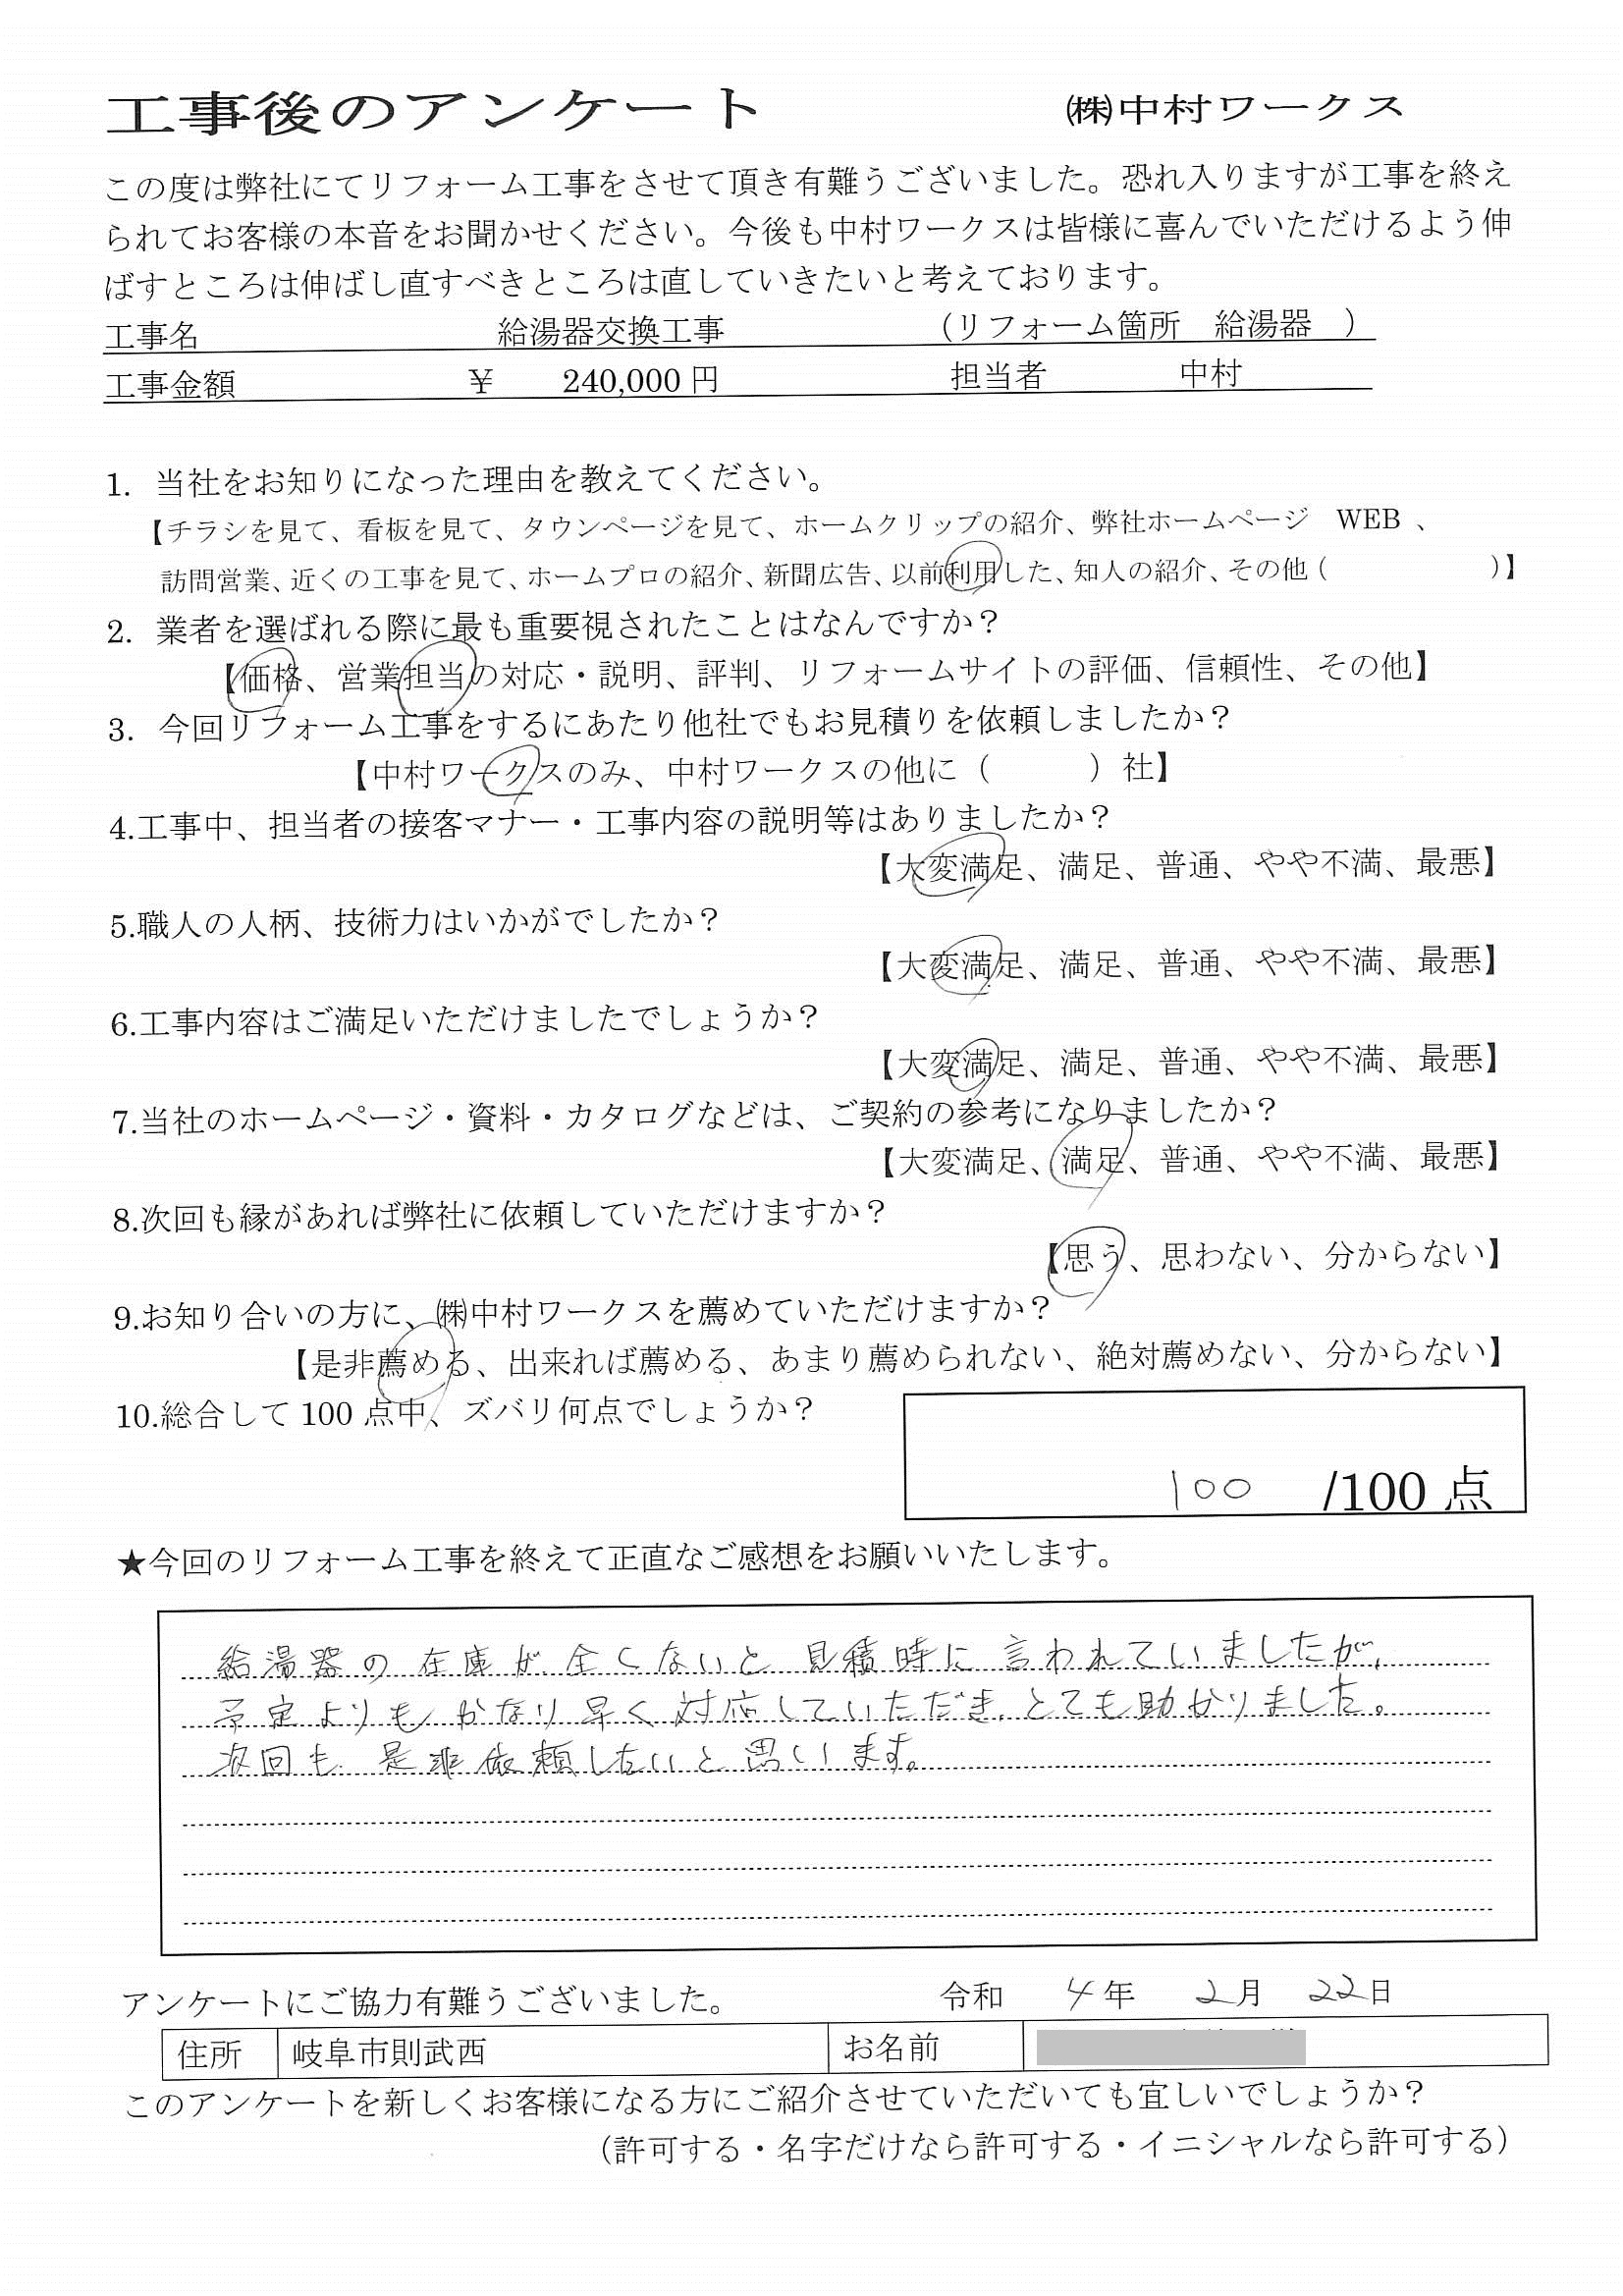 工事後のアンケート　㈱中村ワークス
この度は弊社にてリフォーム工事をさせて頂き有難うございました。恐れ入りますが工事を終え
られてお客様の本音をお聞かせください。今後も中村ワークスは皆様に喜んでいただけるよう伸
ばすところは伸ばし直すべきところは直していきたいと考えております。
工事名　給湯器交換工事　（リフォーム箇所　給湯器　）
工事金額　￥　240,000 円　担当者　中村
1. 当社をお知りになった理由を教えてください。
【チラシを見て、看板を見て、タウンページを見て、ホームクリップの紹介、弊社ホームページ　WEB 、
訪問営業、近くの工事を見て、ホームプロの紹介、新聞広告、以前利用した、知人の紹介、その他（　）】
2. 業者を選ばれる際に最も重要視されたことはなんですか？
【価格、営業担当の対応・説明、評判、リフォームサイトの評価、信頼性、その他】
3. 今回リフォーム工事をするにあたり他社でもお見積りを依頼しましたか？
【中村ワークスのみ、中村ワークスの他に（　）社】
4.工事中、担当者の接客マナー・工事内容の説明等はありましたか？
【大変満足、満足、普通、やや不満、最悪】
5.職人の人柄、技術力はいかがでしたか？
【大変満足、満足、普通、やや不満、最悪】
6.工事内容はご満足いただけましたでしょうか？
【大変満足、満足、普通、やや不満、最悪】
7.当社のホームページ・資料・カタログなどは、ご契約の参考になりましたか？
【大変満足、満足、普通、やや不満、最悪】
8.次回も縁があれば弊社に依頼していただけますか？
【思う、思わない、分からない】
9.お知り合いの方に、㈱中村ワークスを薦めていただけますか？
【是非薦める、出来れば薦める、あまり薦められない、絶対薦めない、分からない】
10.総合して 100 点中、ズバリ何点でしょうか？
100 /100 点
★今回のリフォーム工事を終えて正直なご感想をお願いいたします。
給湯器の在庫が全くないと見積時に言われていましたが、
予定よりもかなり早く対応していただき、とても助かりました。
次回も是非依頼したいと思います。
アンケートにご協力有難うございました。　令和　4年　2月　22日
住所　岐阜市則武西　お名前
このアンケートを新しくお客様になる方にご紹介させていただいても宜しいでしょうか？
（許可する・名字だけなら許可する・イニシャルなら許可する）